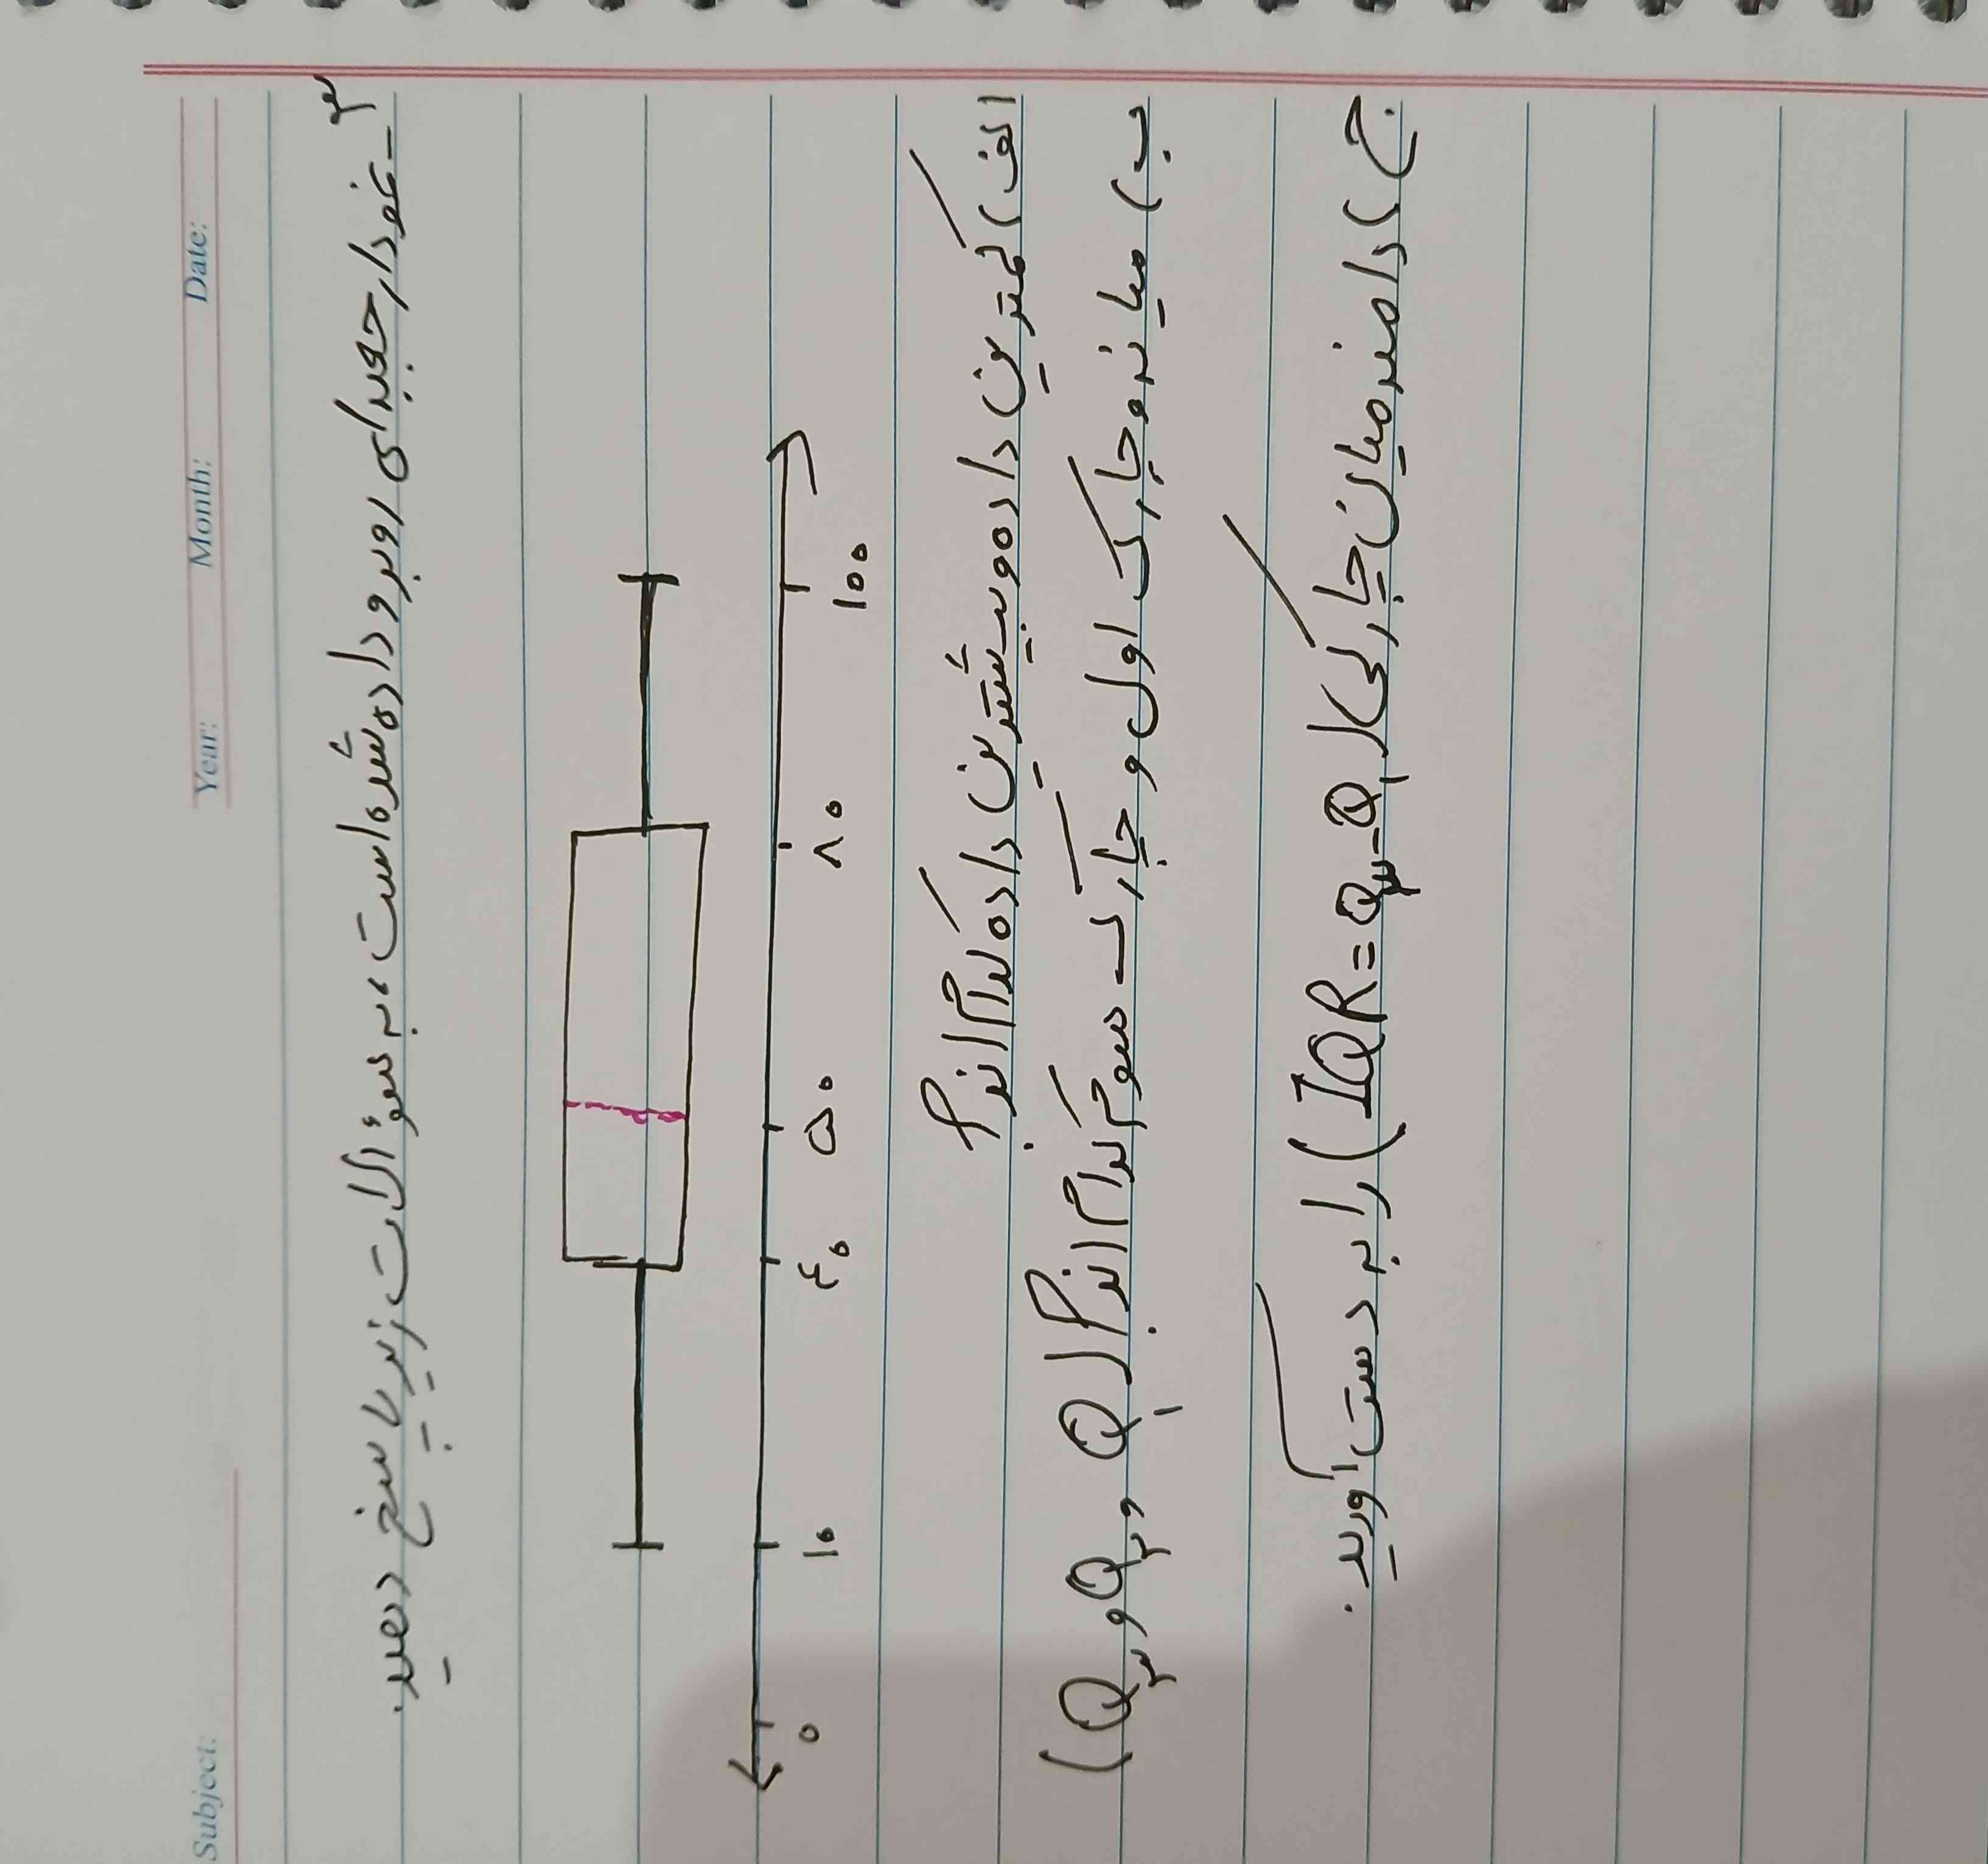 Subject: Year: Month: Date:
۳ـ نمودار جعبه‌ای روبرو داده شده است، به سؤالات زیر پاسخ دهید.
۰ ۱۰ ۴۰ ۵۰ ۸۰ ۱۰۰
الف) کمترین داده و بیشترین داده کدام اند؟
ب) میانه و چارک اول و چارک سوم کدام اند؟ (Q۱ و Q۲ و Q۳)
ج) دامنه میان چارکی (IQR = Q۳ - Q۱) را به دست آورید.